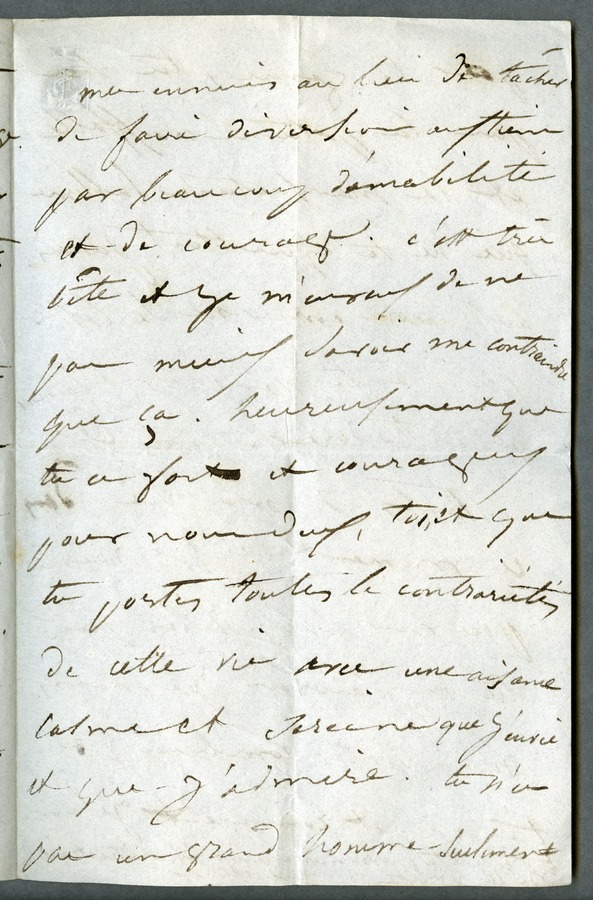 mes ennuis au lieu de tâcher
de faire diversion aux tiens
par beaucoup d'amabilité
et de courage. c'est très
bête et je m'en veux de ne
pas mieux savoir me contraindre
que ça. heureusement que
tu es fort et courageux
pour nous deux, toi, et que
tu portes toutes les contrariétés
de cette vie avec une aisance
calme et sereine que j'envie
et que j'admire. tu n'es
pas un grand homme seulement